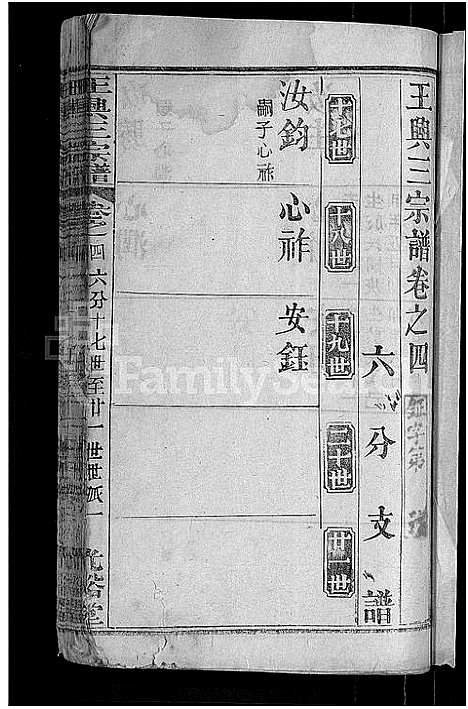 王興三宗譜卷之四
六分支譜
十七世
十八世
十九世
二十世
廿一世
汝鈞
嗣子心祚
心祚
安鈺
王興三宗譜
卷之四
六分十七世至廿一世世派一
光裕堂
FamilySearch